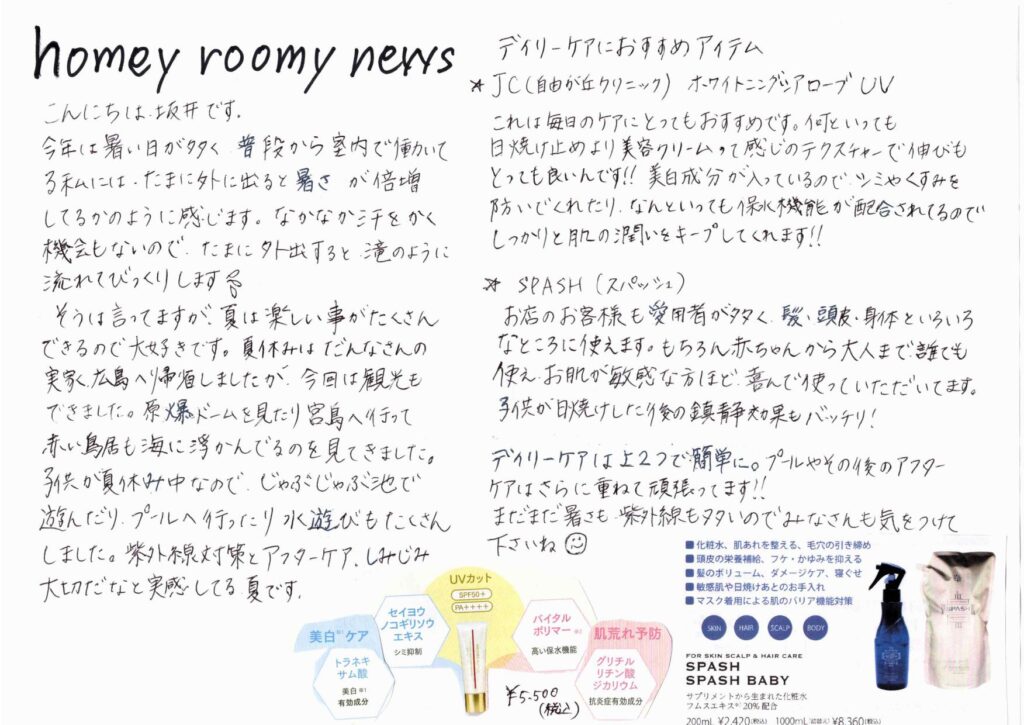 homey roomy news
こんにちは、坂井です。
今年は暑い日が多く、普段から室内で働いて
る私には、たまに外に出ると暑さが倍増
してるかのように感じます。なかなか汗をかく
機会もないので、たまに外出すると、滝のように
流れてびっくりします
そうは言ってますが、夏は楽しい事がたくさん
できるので大好きです。夏休みはだんなさんの
実家、広島へ帰省しましたが、今回は観光も
できました。原爆ドームを見たり宮島へ行って
赤い鳥居も海に浮かんでるのを見てきました。
子供が夏休み中なので、じゃぶじゃぶ池で
遊んだり、プールへ行ったり水遊びもたくさん
しました。紫外線対策とアフターケア、しみじみ
大切だなと実感してる夏です。
デイリーケアにおすすめアイテム
★ JC(自由が丘クリニック) ホワイトニングシアローブUV
これは毎日のケアにとってもおすすめです。何といっても
日焼け止めより美容クリームって感じのテクスチャーで伸びも
とっても良いんです!! 美白成分が入っているので、シミやくすみを
防いでくれたり、なんといっても保水機能が配合されてるので
しっかりと肌の潤いをキープしてくれます!!
★ SPASH (スパッシュ)
お店のお客様も愛用者が多く、髪・頭皮・身体といろいろ
なところに使えます。もちろん赤ちゃんから大人まで誰でも
使え、お肌が敏感な方ほど、喜んで使っていただいてます。
子供が日焼けした後の鎮静効果もバッチリ!
デイリーケアは上2つで簡単に。プールやその後のアフター
ケアはさらに重ねて頑張ってます!!
まだまだ暑さも、紫外線も多いのでみなさんも気をつけて
下さいね
UVカット
SPF50+
PA++++
セイヨウ
ノコギリソウ
エキス
シミ抑制
美白※1ケア
トラネキ
サム酸
美白※1
有効成分
バイタル
ポリマー※2
高い保水機能
肌荒れ予防
グリチル
リチン酸
ジカリウム
抗炎症有効成分
¥5,500
(税込)
■化粧水、肌あれを整える、毛穴の引き締め
■頭皮の栄養補給、フケ・かゆみを抑える
■髪のボリューム、ダメージケア、寝ぐせ
■敏感肌や日焼けあとのお手入れ
■マスク着用による肌のバリア機能対策
SKIN HAIR SCALP BODY
FOR SKIN SCALP & HAIR CARE
SPASH
SPASH BABY
サプリメントから生まれた化粧水
フムスエキス※20%配合
200mL ¥2,420(税込) 1000mL(詰替え) ¥8,360(税込)
SPASH